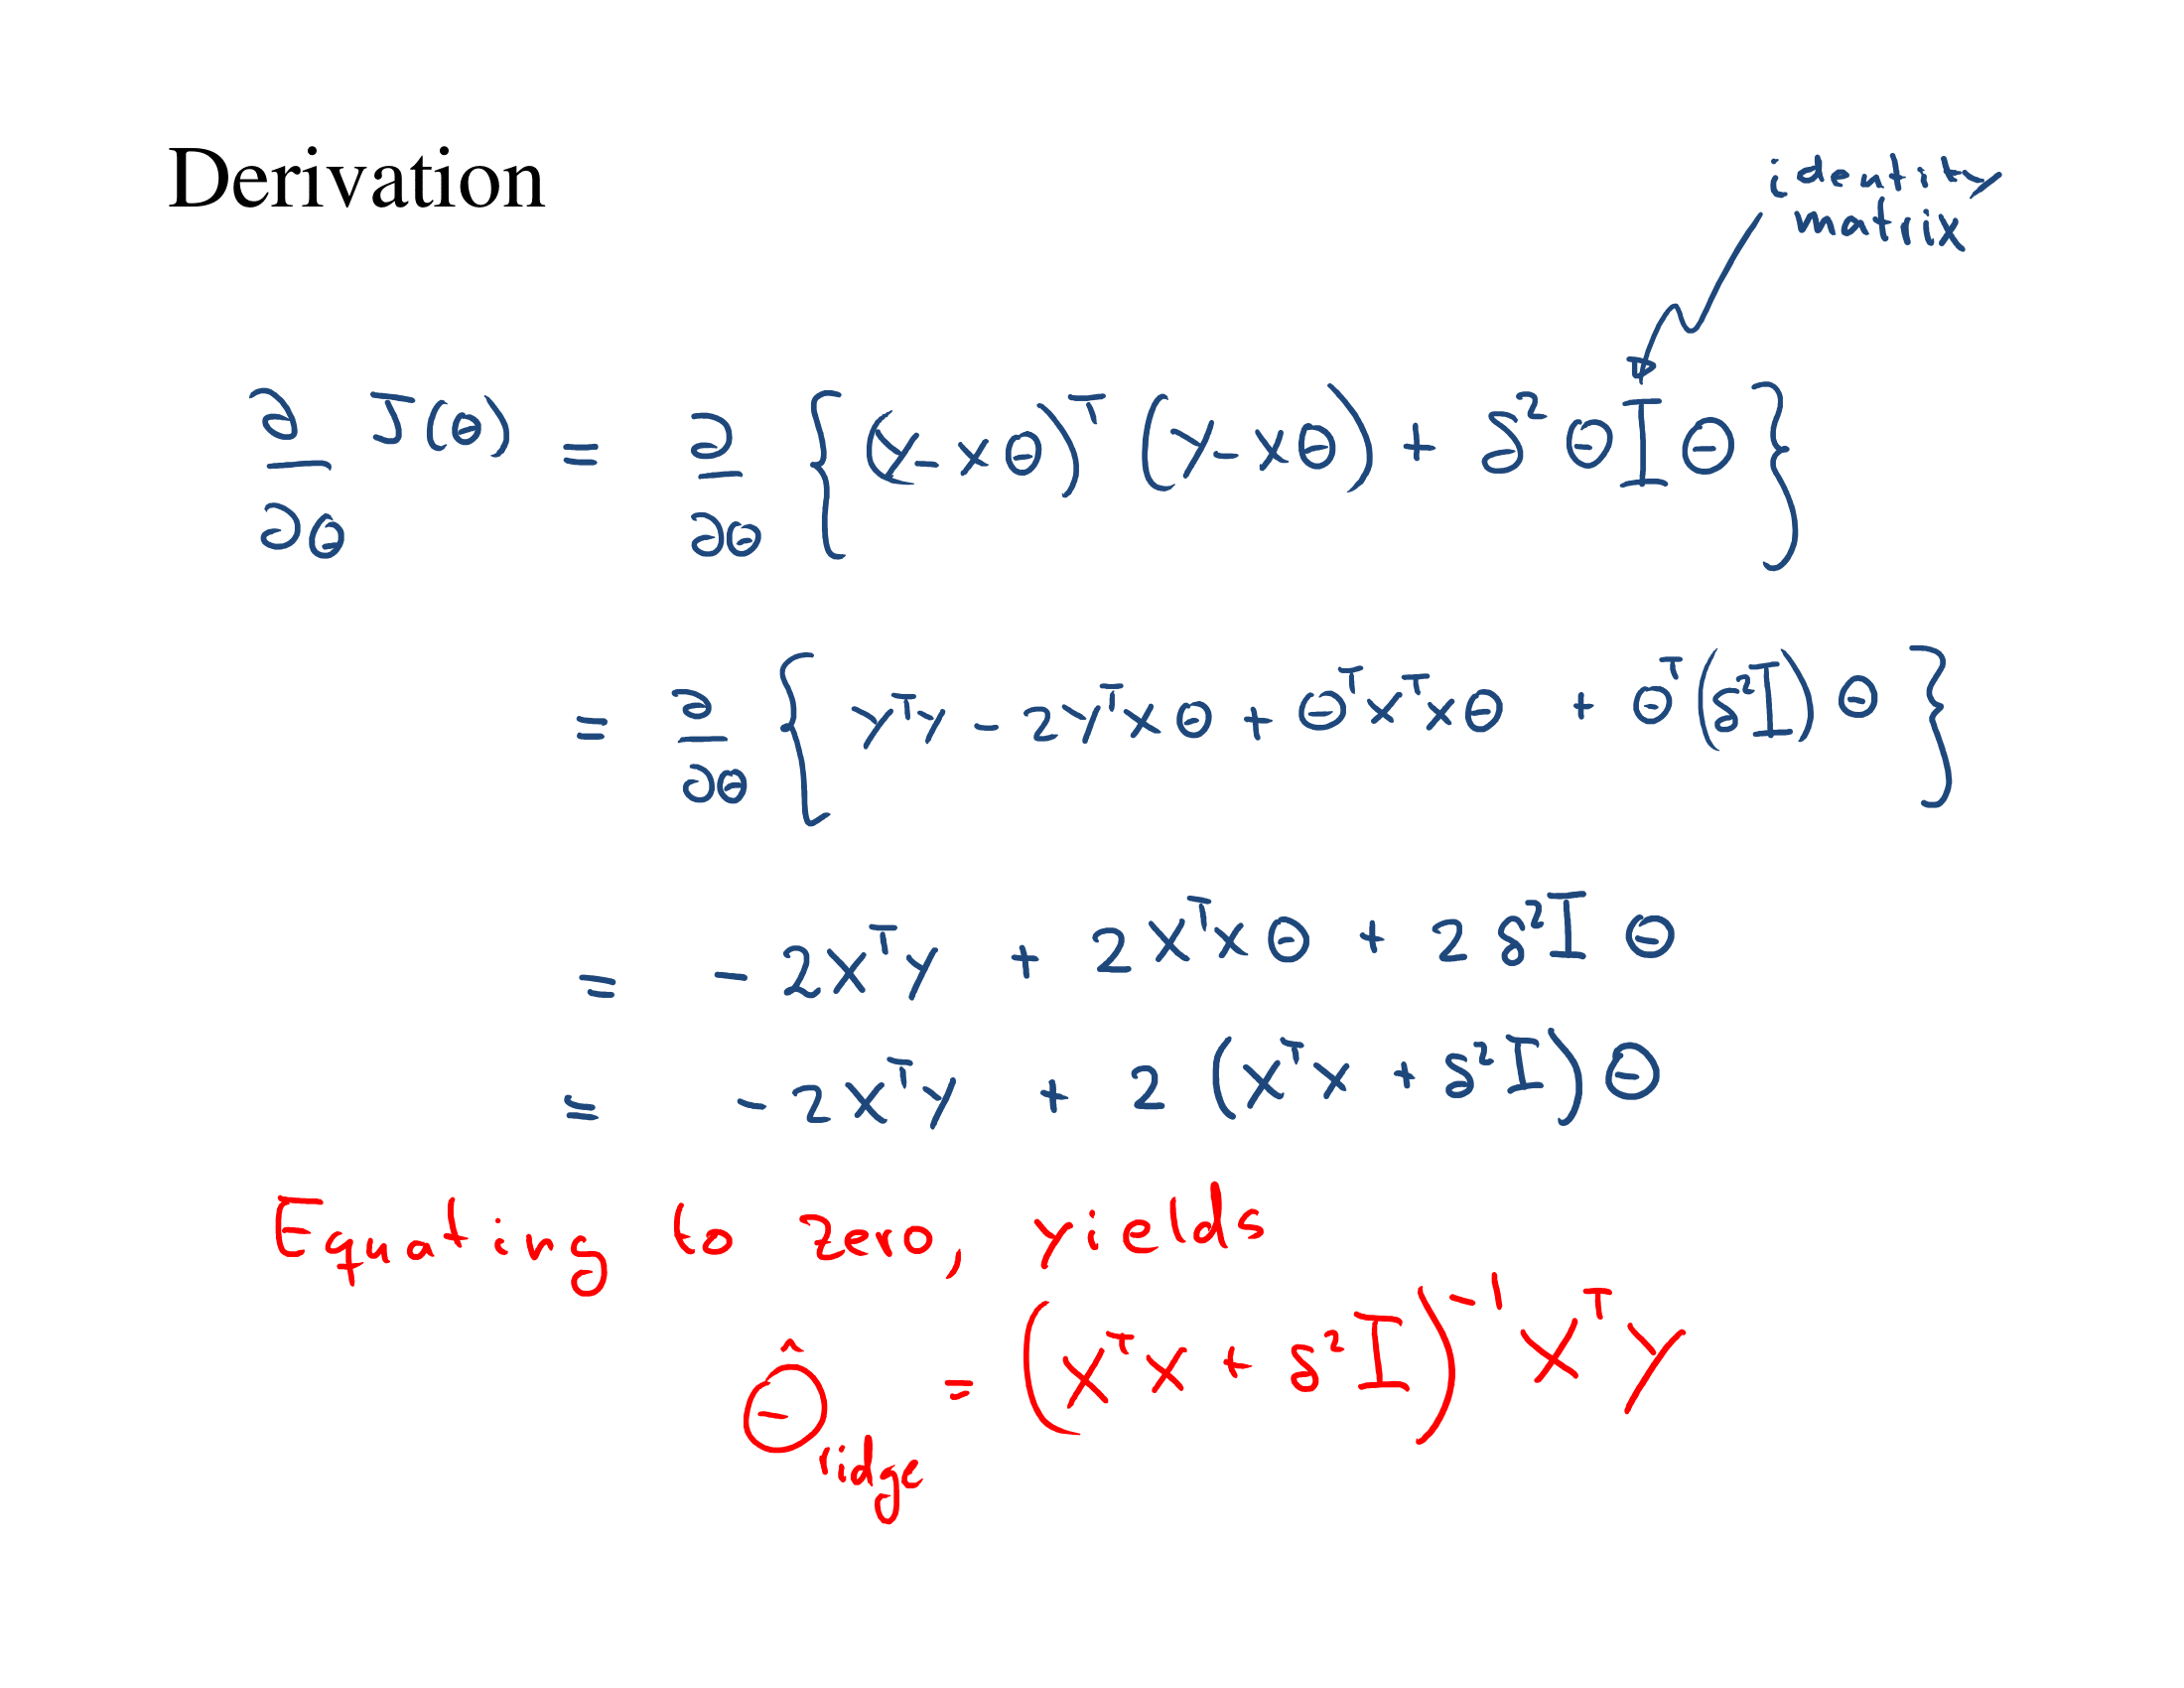 Derivation
identity
matrix
∂/∂θ J(θ) = ∂/∂θ { (y - xθ)ᵀ (y - xθ) + δ² θ I θ }
= ∂/∂θ { yᵀy - 2yᵀxθ + θᵀxᵀxθ + θᵀ(δ²I)θ }
= - 2xᵀy + 2xᵀxθ + 2δ²I θ
= - 2xᵀy + 2 (xᵀx + δ²I) θ
Equating to zero, yields
θ̂ridge = (xᵀx + δ²I)⁻¹ xᵀy